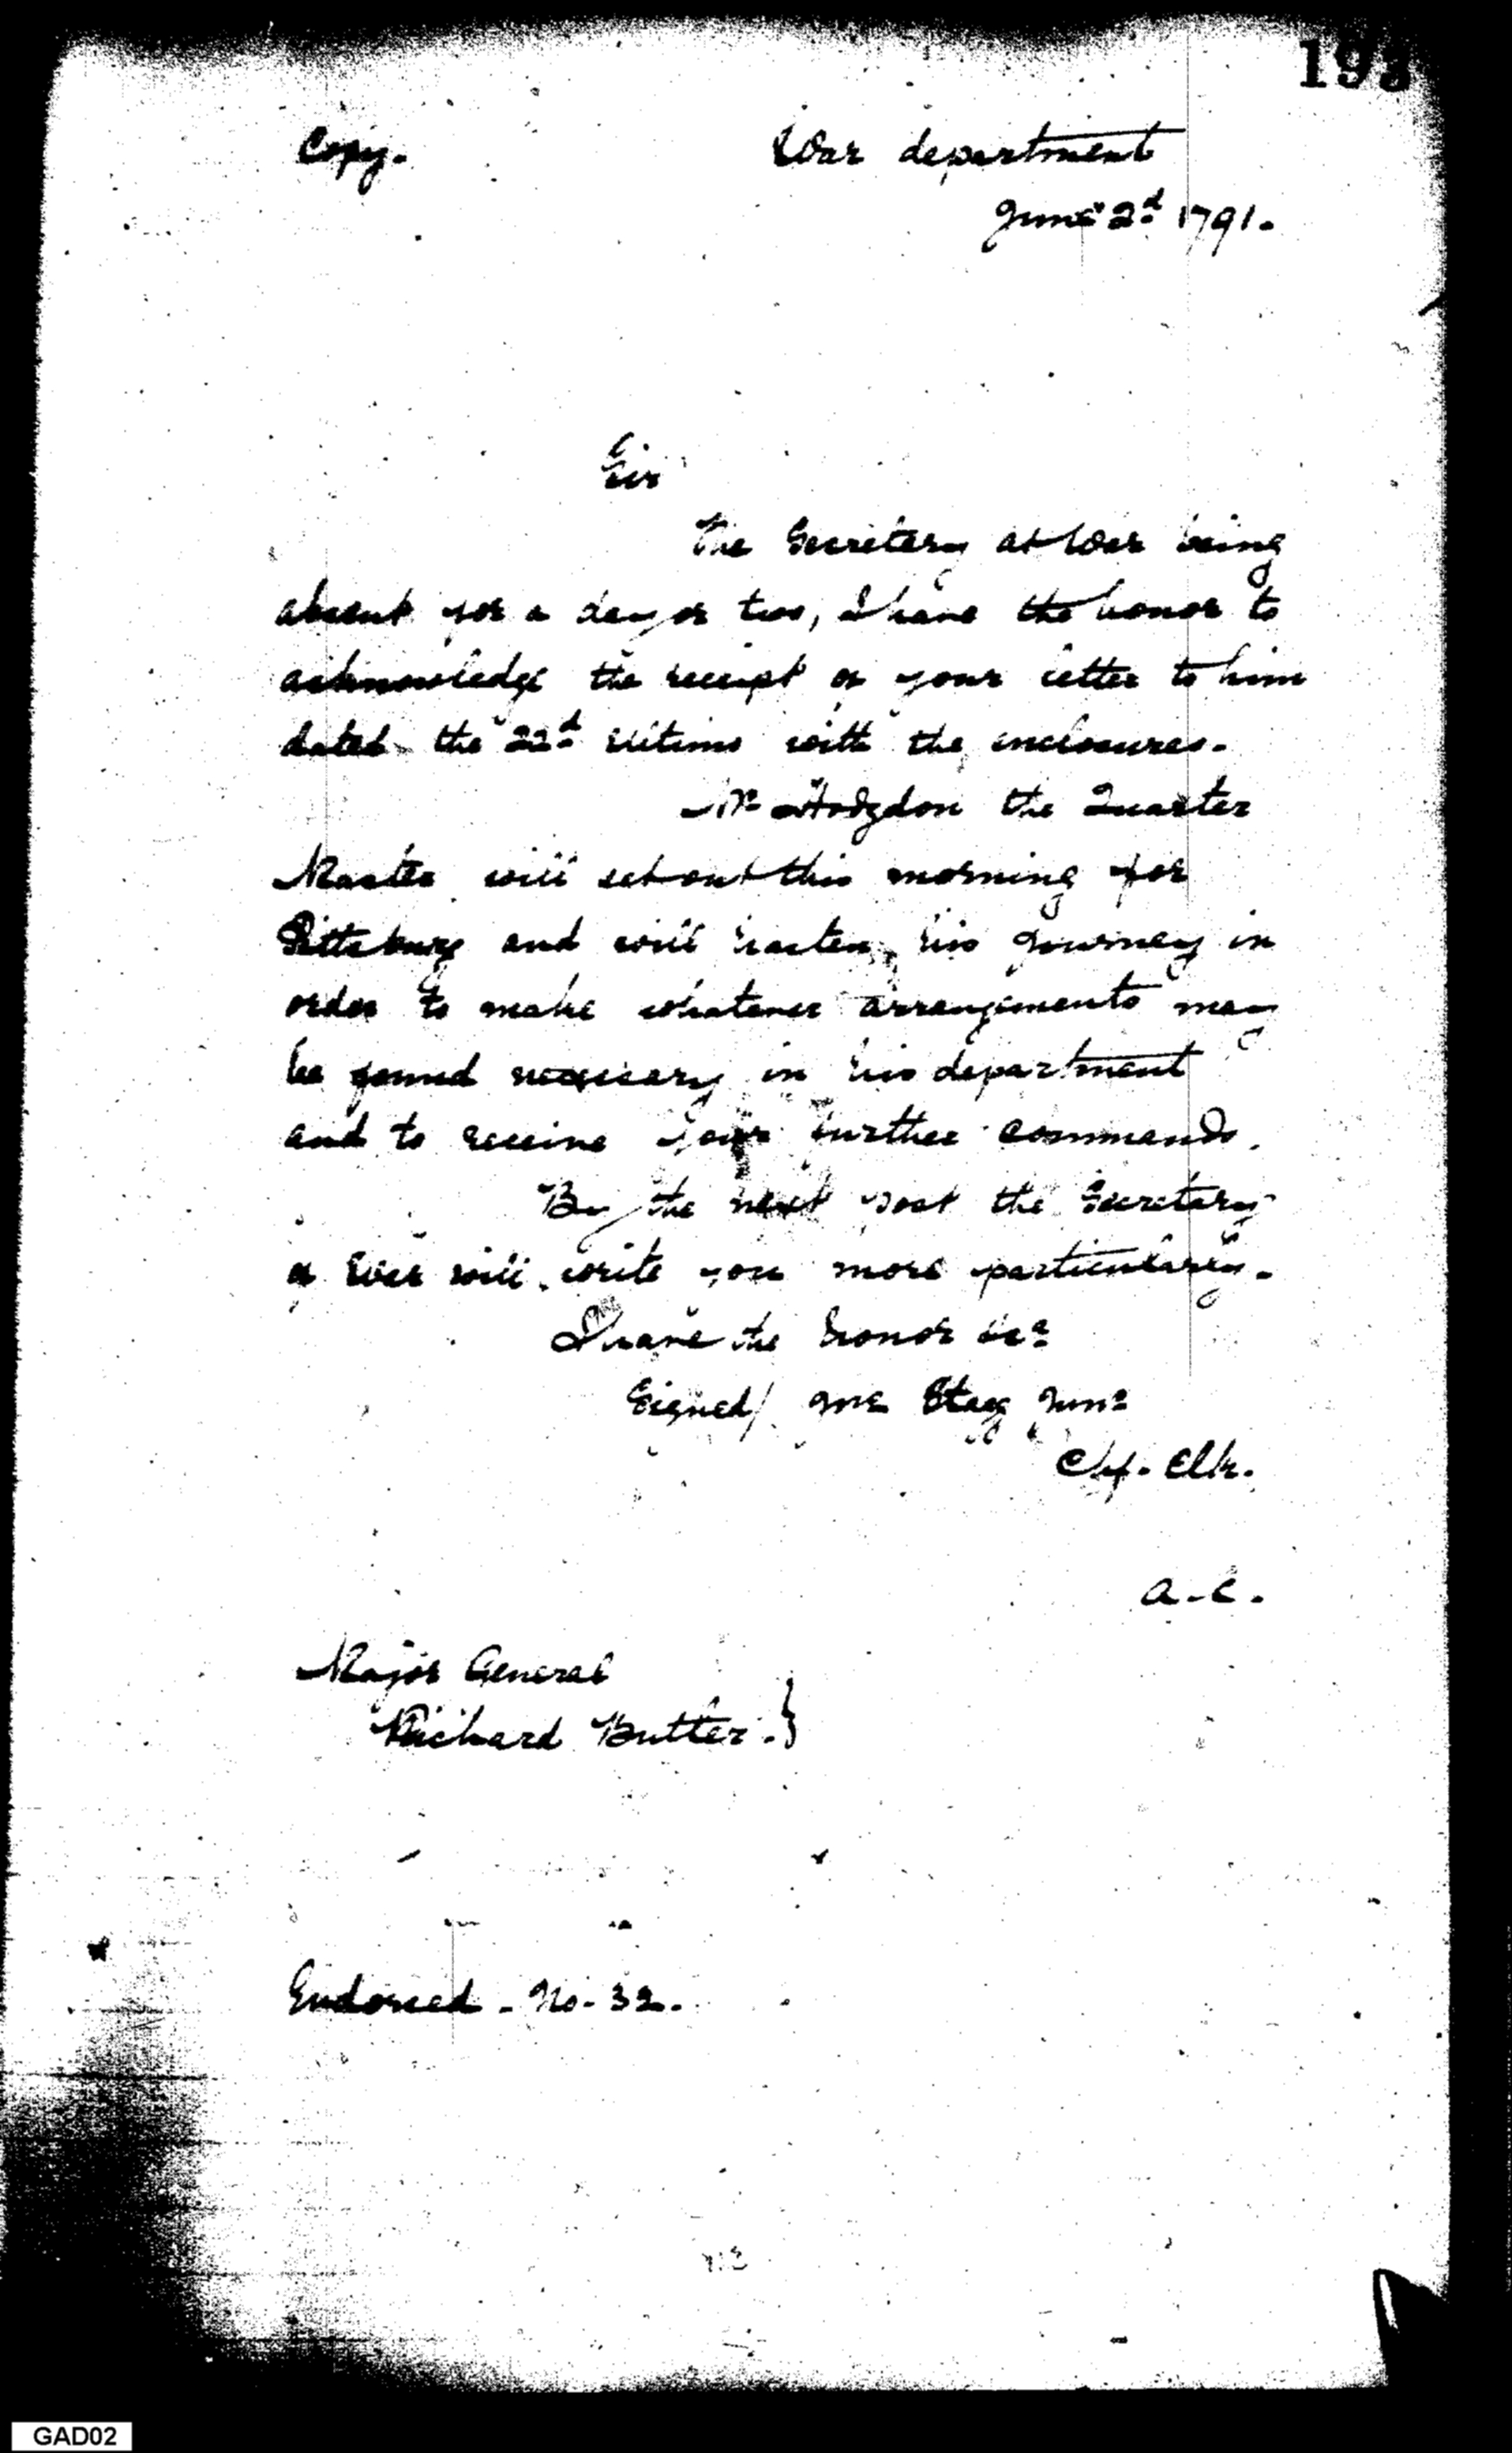 193
Copy.
War department
June 2d 1791.
Sir
The Secretary at War being
absent for a day or two, I have the honor to
acknowledge the receipt of your letter to him
dated the 22d Ultimo with the enclosures.
Mr Hodgdon the Quarter
Master will set out this morning for
Pittsburg and will hasten his journey in
order to make whatever arrangements may
be found necessary in his department
and to receive your further commands.
By the next post the Secretary
of War will write you more particularly.
I have the honor &ca
Signed/ Jno Stagg Junr
Chf. Clk.
a.c.
Major General
Richard Butler.}
Endorsed - No. 32.
GAD02